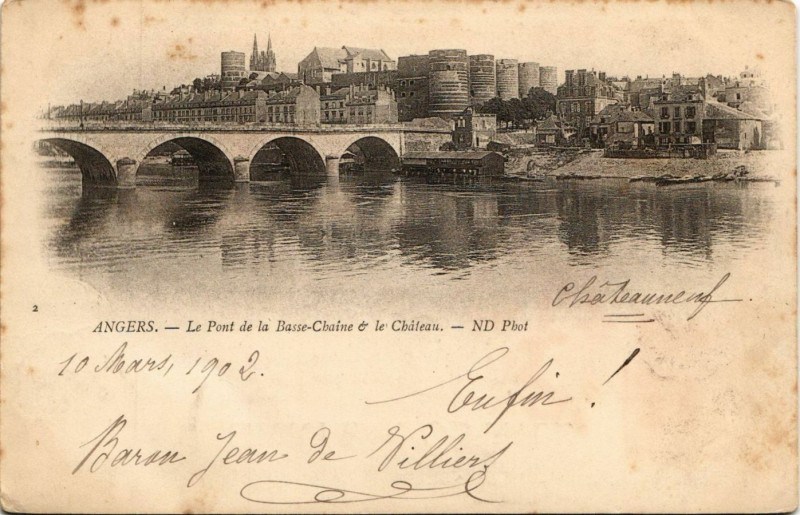 Châteauneuf.
2
ANGERS. — Le Pont de la Basse-Chaine & le Château. — ND Phot
10 Mars, 1902.
Enfin !
Baron Jean de Villiers